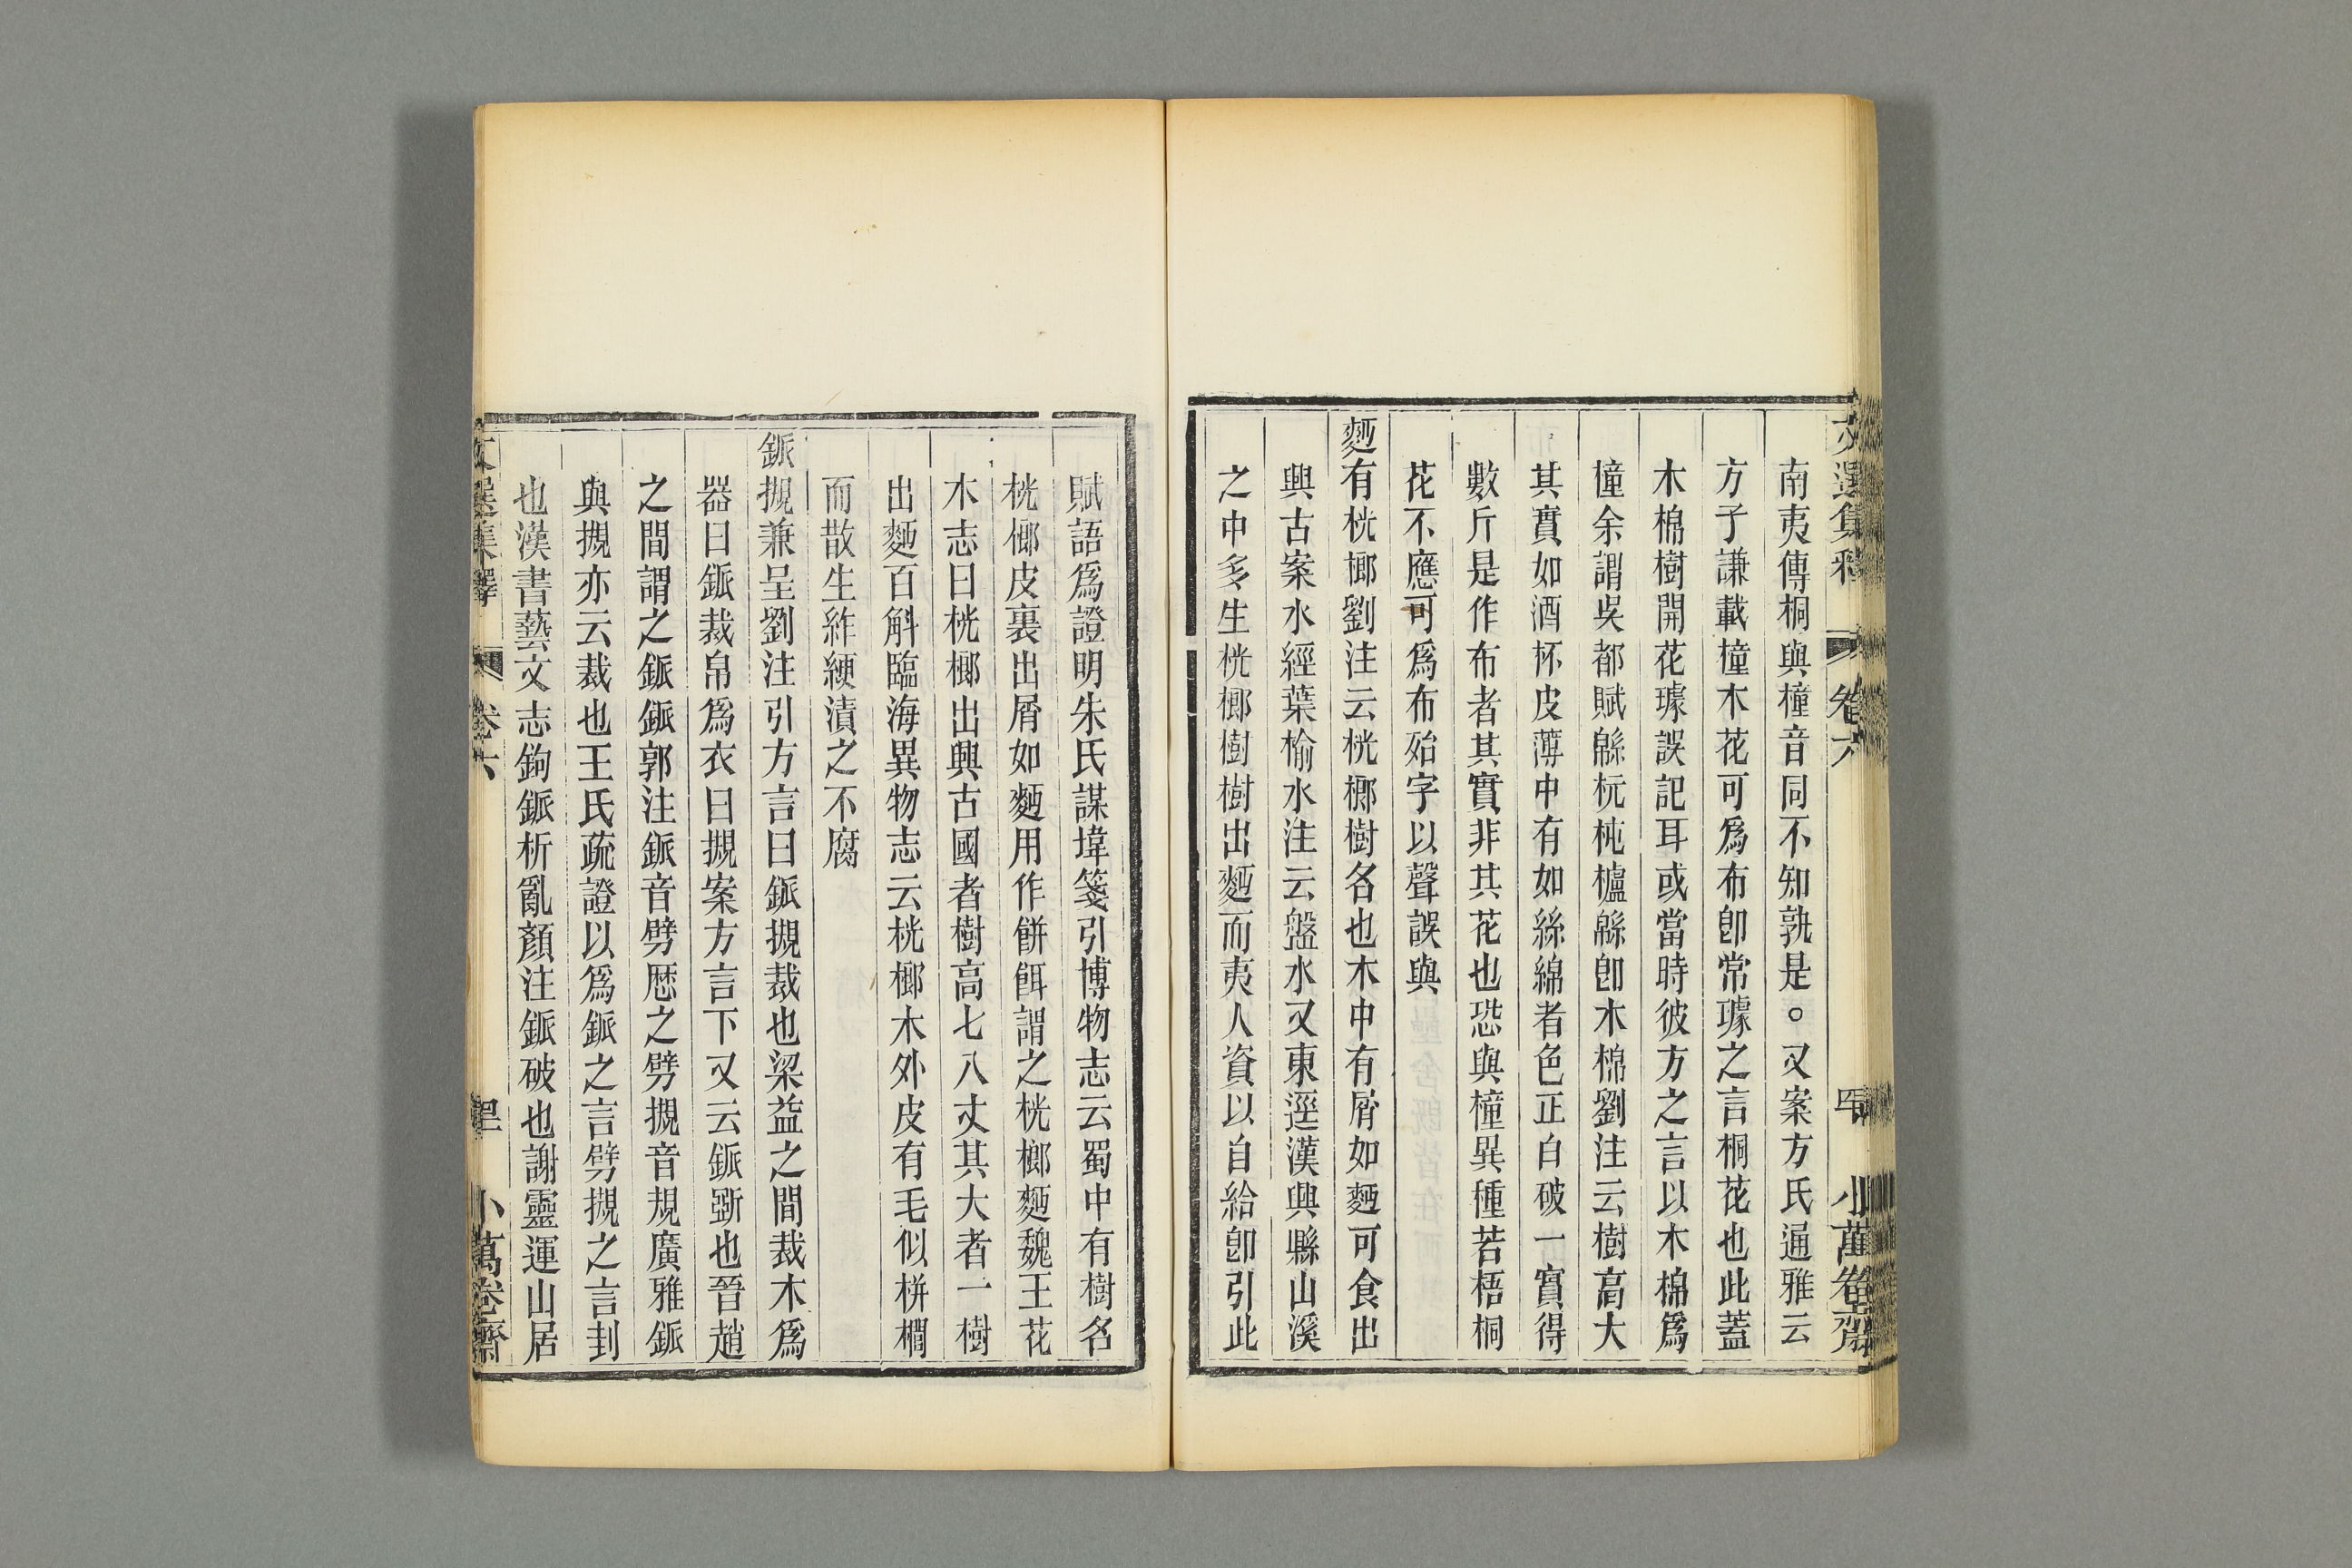 文選集釋 卷六 小萬卷齋
南夷傳桐與橦音同不知孰是。又案方氏通雅云
方子謙載橦木花可爲布卽常璩之言桐花也此蓋
木棉樹開花璩誤記耳或當時彼方之言以木棉爲
橦余謂吳都賦緜杬杶櫨緜卽木棉劉注云樹高大
其實如酒杯皮薄中有如絲綿者色正白破一實得
數斤是作布者其實非其花也恐與橦異種若梧桐
花不應可爲布殆字以聲誤與
麪有桄榔劉注云桄榔樹名也木中有屑如麪可食出
興古案水經葉榆水注云盤水又東逕漢興縣山溪
之中多生桄榔樹樹出麪而夷人資以自給卽引此
賦語爲證明朱氏謀㙔箋引博物志云蜀中有樹名
桄榔皮裏出屑如麪用作餅餌謂之桄榔麪魏王花
木志曰桄榔出興古國者樹高七八丈其大者一樹
出麪百斛臨海異物志云桄榔木外皮有毛似栟櫚
而散生緈緶漬之不腐
鈲摫兼呈劉注引方言曰鈲摫裁也梁益之間裁木爲
器曰鈲裁帛爲衣曰摫案方言下又云鈲斲也晉趙
之間謂之鈲鈲郭注鈲音劈歷之劈摫音規廣雅鈲
與摫亦云裁也王氏疏證以爲鈲之言劈摫之言刲
也漢書藝文志鉤鈲析亂顏注鈲破也謝靈運山居
文選集釋 卷六 小萬卷齋